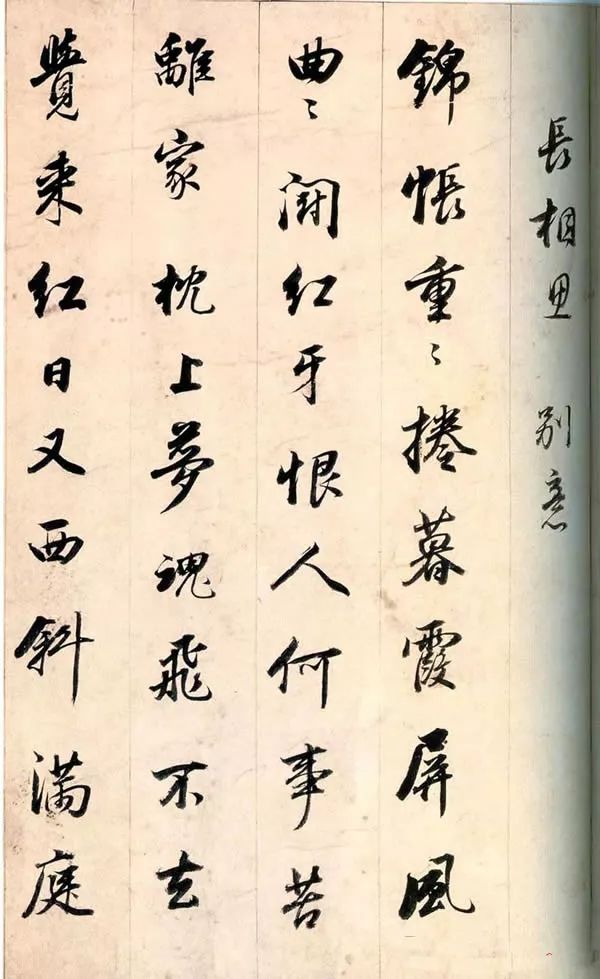 長相思 別意
錦帳重〻捲暮霞屏風
曲〻鬪紅牙恨人何事苦
離家 枕上夢魂飛不去
覺来紅日又西斜滿庭